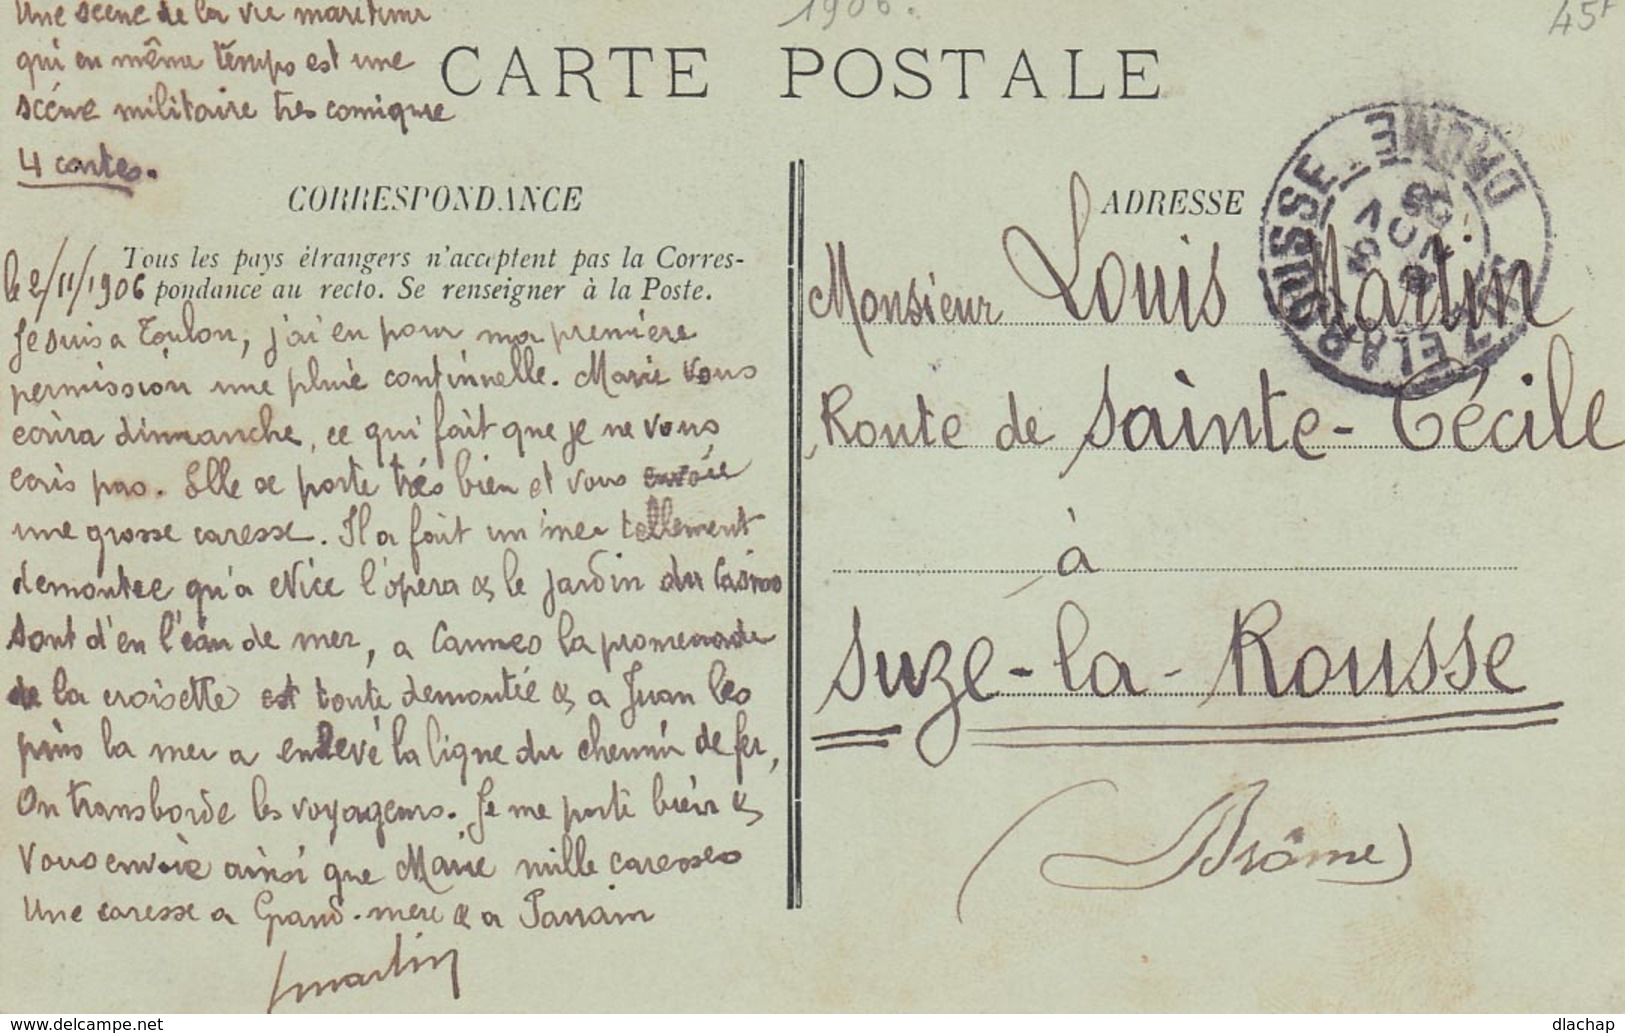 Une scène de la vie maritime
qui en même temps est une
scéne militaire tres comique
4 cartes.
1906.
45F
CARTE POSTALE
CORRESPONDANCE
Tous les pays étrangers n'acceptent pas la Corres-
pondance au recto. Se renseigner à la Poste.
le 2/11/1906
Je suis a Toulon, j'ai eu pour ma premiere
permission une pluie continnelle. Marie vous
ecrira dimmanche, ce qui fait que je ne vous
ecris pas. Elle se porte très bien et vous envoie
une grosse caresse. Il a fait un mer tellement
demontee qu'a Nice l'opera & le jardin du Casino
sont d'en l'eau de mer, a Cannes la promenade
de la croisette est toute demontée & a Juan les
pins la mer a enlevé la ligne du chemin de fer,
On transborde les voyageurs. Je me porte bien &
vous envoie ainsi que Marie mille caresses
Une caresse a Grand-mere & a Parrain
Martin
ADRESSE
SUZE LA ROUSSE - DROME
NOV
06
Monsieur Louis Martin
Route de Sainte-Cécile
à
Suze-la-Rousse
(Drôme)
www.delcampe.net
dlachap